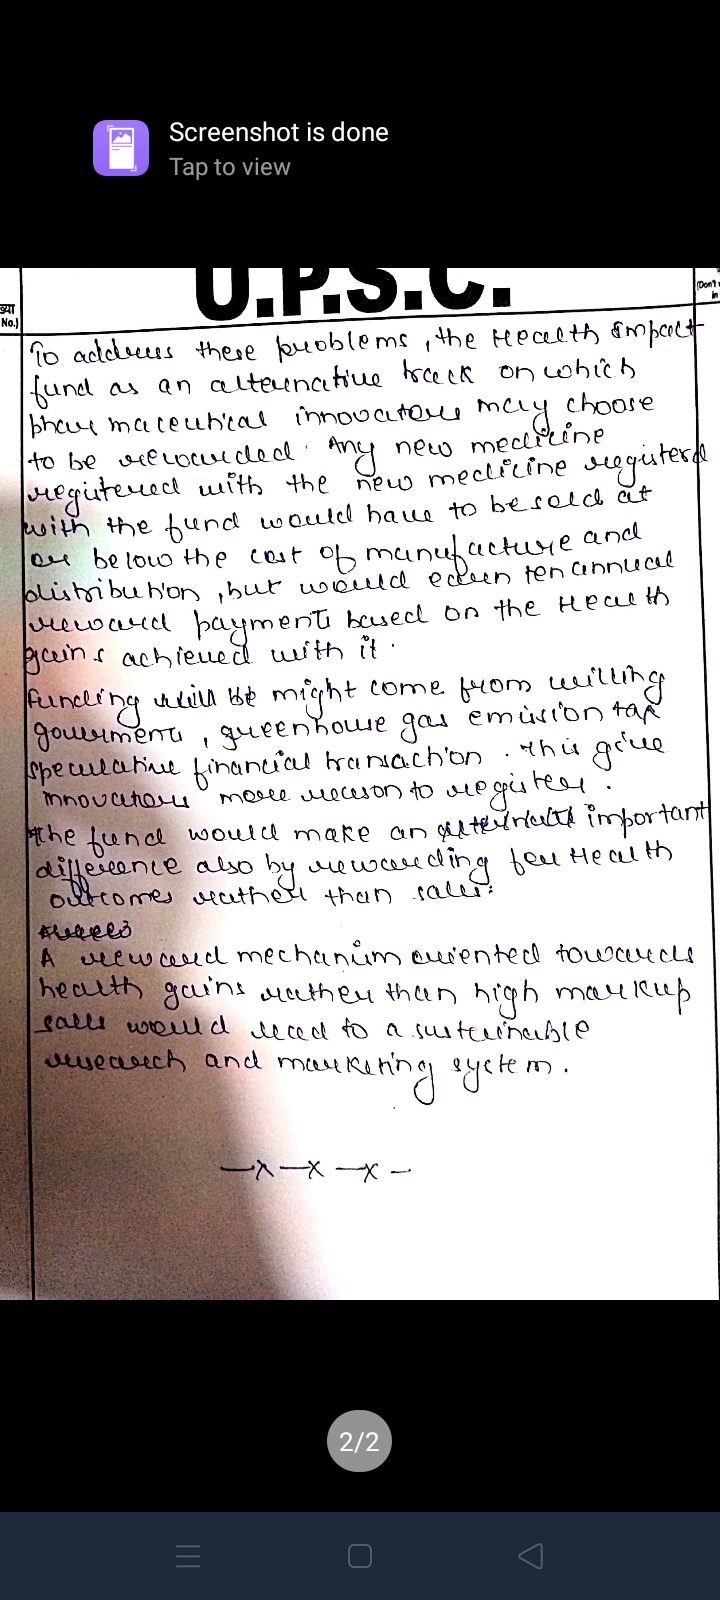 Screenshot is done
Tap to view
U.P.S.C.
ख्या
No.)
(Don't
in
To address these problems, the Health Impact
fund as an alternative track on which
pharmaceutical innovators may choose
to be rewarded. Any new medicine
registered with the new medicine registerd
with the fund would have to be sold at
or below the cost of manufacture and
distribution, but would earn ten annual
reward payments based on the Health
gains achieved with it.
funding will be might come from willing
goverments, greenhouse gas emission tax
speculative financial transaction. This give
innovators more reason to register.
The fund would make an important
difference also by rewarding for Health
outcomes rather than sales:
A reward mechanism oriented towards
health gains rather than high markup
sales would lead to a sustainable
research and marketing system.
—x—x—x—
2/2